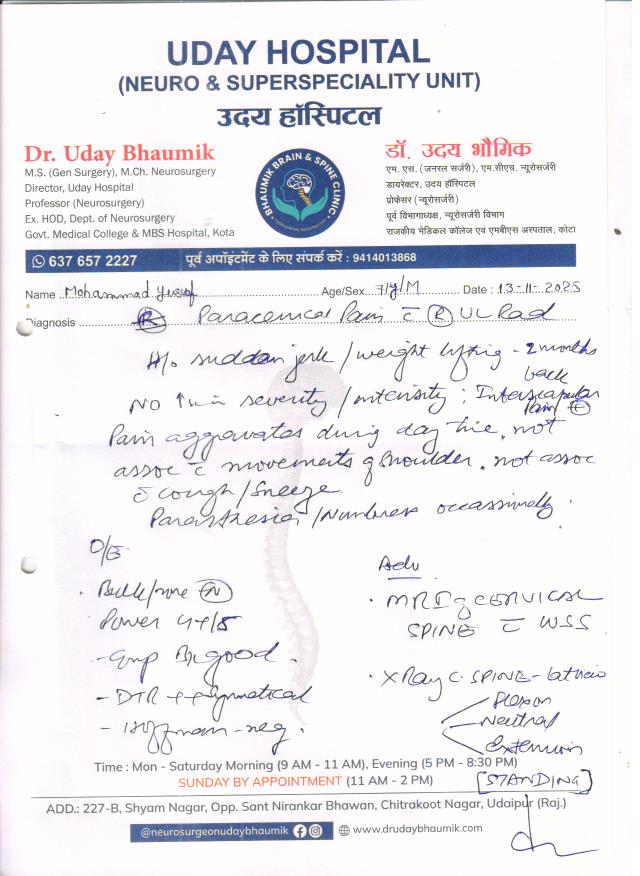 UDAY HOSPITAL
(NEURO & SUPERSPECIALITY UNIT)
उदय हॉस्पिटल
Dr. Uday Bhaumik
M.S. (Gen Surgery), M.Ch. Neurosurgery
Director, Uday Hospital
Professor (Neurosurgery)
Ex. HOD, Dept. of Neurosurgery
Govt. Medical College & MBS Hospital, Kota
BHAUMIK BRAIN & SPINE CLINIC
डॉ. उदय भौमिक
एम. एस. (जनरल सर्जरी), एम.सीएच. न्यूरोसर्जरी
डायरेक्टर, उदय हॉस्पिटल
प्रोफेसर (न्यूरोसर्जरी)
पूर्व विभागाध्यक्ष, न्यूरोसर्जरी विभाग
राजकीय मेडिकल कॉलेज एवं एमबीएस अस्पताल, कोटा
637 657 2227 पूर्व अपॉइंटमेंट के लिए संपर्क करें : 9414013868
Name Mohammad Yusuf Age/Sex /M Date : 13-11-2025
Diagnosis (R) Paracervical Pain c̄ (R) UL Rad
H/o sudden jerk / weight lifting - 2 months back
No ↑ in severity / intensity ; Interscapular Pain (+)
Pain aggravates during day time, not
assoc c̄ movements of shoulder, not assoc
c̄ cough / sneeze
Paresthesias / Numbness occassionally.
O/E
. Bulk/tone (N)
Power 4+/5
- Grip good.
- DTR ++ Symmetrical
- Hoffman - neg.
Adv
. MRI of CERVICAL
SPINE c̄ WSS
. X Ray C. SPINE - lat
Flexon
Neutral
Extension
[STANDING]
Time : Mon - Saturday Morning (9 AM - 11 AM), Evening (5 PM - 8:30 PM)
SUNDAY BY APPOINTMENT (11 AM - 2 PM)
ADD.: 227-B, Shyam Nagar, Opp. Sant Nirankar Bhawan, Chitrakoot Nagar, Udaipur (Raj.)
@neurosurgeonudaybhaumik www.drudaybhaumik.com